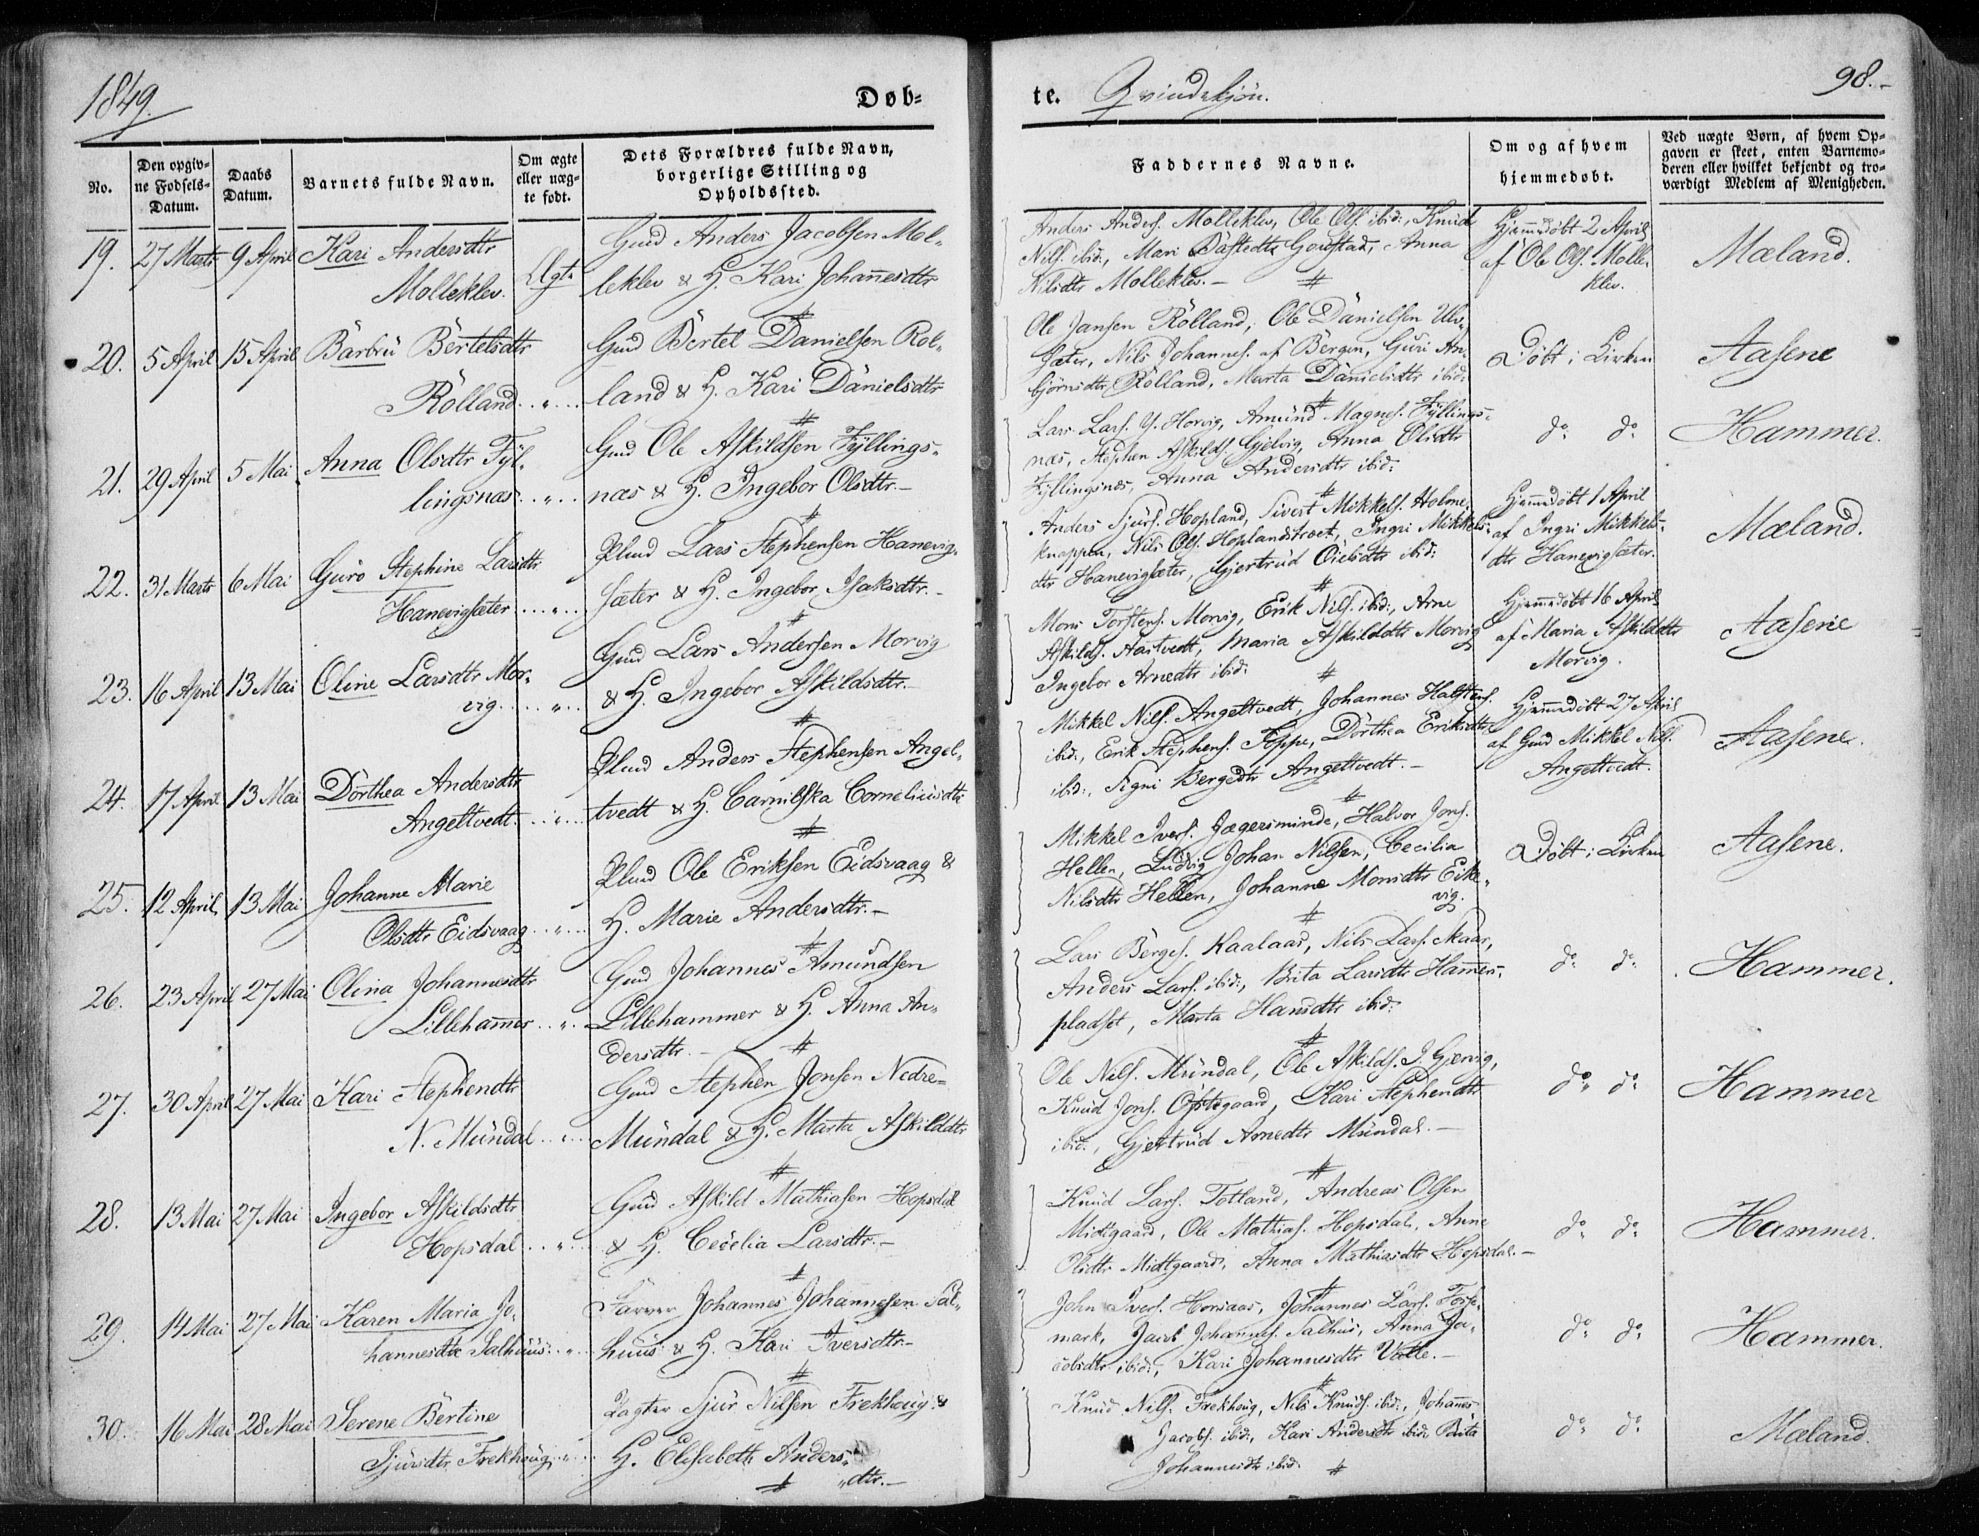 1849.
Døb-
te. Qvindekjøn.
98.-
No.
Den opgiv-
ne Fødsels-
Datum.
Daabs
Datum.
Barnets fulde Navn.
Om ægte
eller uæg-
te født.
Dets Forældres fulde Navn,
borgerlige Stilling og
Opholdssted.
Faddernes Navne.
Om og af hvem
hjemmedøbt.
Ved uægte Børn, af hvem Op-
gaven er skeet, enten Barnemo-
deren eller hvilket bekjendt og tro-
værdigt Medlem af Menigheden.
19. 27 Marts 9 April Kari Andersdtr
Molleklev. Ægte
Gmd Anders Jacobsen Mol-
leklev & H. Kari Johannesdtr
#
Anders Anders. Molleklev, Ole Ols. ibid:, Knud
Nils. ibid:, Mari Gourstad, Anna
Nilsdtr Molleklev. - #
Hjemmedøbt 2 April
af Ole Ols. Molle-
klev.
Mæland.
20. 5 April 15 April Barbru Bertelsdtr
Rölland
Gmd Bertel Danielsen Röl-
land & H. Kari Danielsdtr
#
Ole Jansen Rölland, Ole Danielsen Ulv-
sæter, Nils Johannes. af Bergen, Guri An-
björnsdtr Rölland, Marta Danielsdtr ibid:
#
Døbt i Kirken
Aasene
21. 29 April 5 Mai Anna Olsdtr Fyl-
lingsnæs
Gmd Ole Askildsen Fyllings-
næs & H. Ingebor Olsdtr.-
#
Lars Lars. Y. Horvig, Amund Magnes. Fyllings-
næs, Stephen Askilds. Gjelvig, Anna Olsdtr
Fyllingsnæs, Anna Andersdtr ibid:
#
do do
Hammer.
22. 31 Marts 6 Mai Guro Stephine Larsdtr
Hanevigsæter
Plmd Lars Stephensen Hanevig-
sæter & H. Ingebor Isaksdtr.-
#
Anders Sjurs. Hopland, Sivert Mikkels. Holme-
knappen, Nils Ols. Hoplandstræt, Ingri Mikkels-
dtr Hanevigsæter, Gjertrud ibid:
#
Hjemmedøbt 1 April
af Ingri Mikkels-
dtr Hanevigsæter.
Mæland.
23. 16 April 13 Mai Oline Larsdtr Mor-
vig
Gmd Lars Andersen Morvig
& H. Ingebor Askildsdtr.-
#
Mons Torstens. Morvig, Erik Nils. ibid:, Arne
Askilds. Aastvedt, Maria Askildsdtr Morvig
Ingebor Arnedtr ibid: #
Hjemmedøbt 16 April
af Maria Askildsdtr
Morvig.
Aasene
24. 17 April 13 Mai Dorthea Andersdtr
Angeltvedt
Plmd Anders Stephensen Angel-
tvedt & H. Corneliusdtr
#
Mikkel Nils. Angeltvedt, Johannes Halstens.
ibid:, Erik Stephens. Toppe, Dorthea Eriksdtr
ibid:, Signi Bergedtr Angeltvedt.-
#
Hjemmedøbt 27 April
af Gmd Mikkel Nils.
Angeltvedt.
Aasene.
25. 12 April 13 Mai Johanne Marie
Olsdtr Eidsvaag
Plmd Ole Eriksen Eidsvaag &
H. Marie Andersdtr.-
#
Mikkel Ivers. Jægersminde, Halvor Jons.
Hellen, Ludvig Johan Nilsen, Cecilia
Nilsdtr Hellen, Johanne Monsdtr Eike-
vig.
#
Døbt i Kirken
Aasene.
26. 23 April 27 Mai Olina Johannesdtr
Lillehammer
Gmd Johannes Amundsen
Lillehammer & H. Anna An-
dersdtr.- #
Lars Börges. Kaalaas, Nils Lars. Skaar,
Anders Lars. ibid:, Brita Larsdtr Hammers-
pladset, Marta Hansdtr ibid:
#
do do
Hammer.
27. 30 April 27 Mai Kari Stephensdtr
N. Mundal
Gmd Stephen Jonsen Nedre-
Mundal & H. Marta Askildsdtr
#
Ole Nils. Mundal, Ole Askilds. I. Gjervig,
Knud Jons. Östegaard, Kari Stephensdtr
ibid:, Gjertrud Arnedtr Mundal.-
#
do do
Hammer
28. 13 Mai 27 Mai Ingebor Askildsdtr
Hopsdal
Gmd Askild Mathiasen Hopsdal
& H. Cecelia Larsdtr.-
#
Knud Lars. Totland, Andreas Olsen
Midtgaard, Ole Mathias. Hopsdal, Anne
Olsdtr Midtgaard, Anna Mathiasdtr Hopsdal.-
#
do do
Hammer.
29. 14 Mai 27 Mai Karen Maria Jo-
hannesdtr Salhuus
Farver Johannes Johannesen Sal-
huus & H. Kari Iversdtr.-
#
John Ivers. Horsaas, Johannes Lars. Tosse-
mark, Jacob Johannes. Salhus, Anna Ja-
cobsdtr ibid:, Kari Johannesdtr Valle.-
#
do do
Hammer.
30. 16 Mai 28 Mai Serene Bertine
Sjursdtr Frekhoug
Sjur Nilsen Frekhoug &
H. Elisabeth Anders-
# dtr.-
Knud Nils. Frekhoug, Nils Knuds. ibid:, Johannes
Jacobs. ibid:, Kari Andersdtr ibid: Brita
Johannesdtr ibid: #
do do
Mæland.